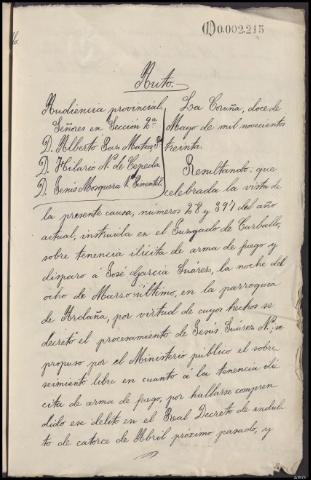 0.002.215
Auto.
Audiencia provincial
Señores en Sección 2ª
D. Alberto Paz Mateos Pte
D. Hilario N. de Cepeda
D. Genis Mosquera V. Pimentel
La Coruña, doce de
Mayo de mil novecientos
treinta.
Resultando: que
celebrada la vista de
la presente causa, números 28 y 397 del año
actual, instruida en el Juzgado de Carballo,
sobre tenencia ilícita de arma de fuego y
disparo á José García Suárez, la noche del
ocho de Marzo último, en la parroquia
de Ardaña, por virtud de cuyos hechos se
decretó el procesamiento de Jesús Suárez se
propuso por el Ministerio publico el sobre
seimiento libre en cuanto á la tenencia ilí
cita de arma de fuego, por hallarse compren
dido ese delito en el Real Decreto de indul
to de catorce de Abril próximo pasado, y